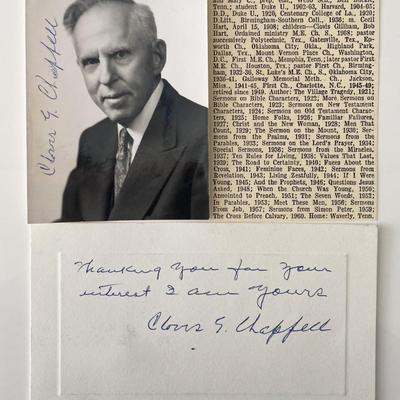 Clovis G. Chappell
Tenn.; student Duke U., 1902-03, Harvard, 1904-05;
D.D., Duke U., 1920, Centenary College of La., 1920;
D.Litt., Birmingham-Southern Coll., 1936; m. Cecil
Hart, April 15, 1908; children—Clovis Gillham, Bob
Hart. Ordained ministry M.E. Ch. S., 1908; pastor
successively Polytechnic, Tex., Gatesville, Tex., Ep-
worth Ch., Oklahoma City, Okla., Highland Park,
Dallas, Tex., Mount Vernon Place Ch., Washington,
D.C., First M.E. Ch., Memphis, Tenn.; later pastor First
M.E. Ch., Houston, Tex.; pastor First Ch., Birming-
ham, 1932-36, St. Luke's M.E. Ch. S., Oklahoma City,
1936-41, Galloway Memorial Meth. Ch., Jackson,
Miss., 1941-45, First Ch., Charlotte, N.C., 1945-49;
retired since 1949. Author: The Village Tragedy, 1921;
Sermons on Biblical Characters, 1922; More Sermons on
Biblical Characters, 1923; Sermons on New Testament
Characters, 1924; Sermons on Old Testament Charac-
ters, 1925; Home Folks, 1926; Familiar Failures,
1927; Christ and the New Woman, 1928; Men That
Count, 1929; The Sermon on the Mount, 1930; Ser-
mons from the Psalms, 1931; Sermons from the
Parables, 1933; Sermons on the Lord's Prayer, 1934;
Special Sermons, 1936; Sermons from the Miracles,
1937; Ten Rules for Living, 1938; Values That Last,
1939; The Road to Certainty, 1940; Faces About the
Cross, 1941; Feminine Faces, 1942; Sermons from
Revelation, 1943; Living Zestfully, 1944; If I Were
Young, 1945; And the Prophets, 1946; Questions Jesus
Asked, 1948; When the Church Was Young, 1950;
Anointed to Preach, 1951; The Seven Words, 1952;
In Parables, 1953; Meet These Men, 1956; Sermons
From Job, 1957; Sermons from Simon Peter, 1959;
The Cross Before Calvary, 1960. Home: Waverly, Tenn.
Thanking you for your
interest I am yours
Clovis G. Chappell